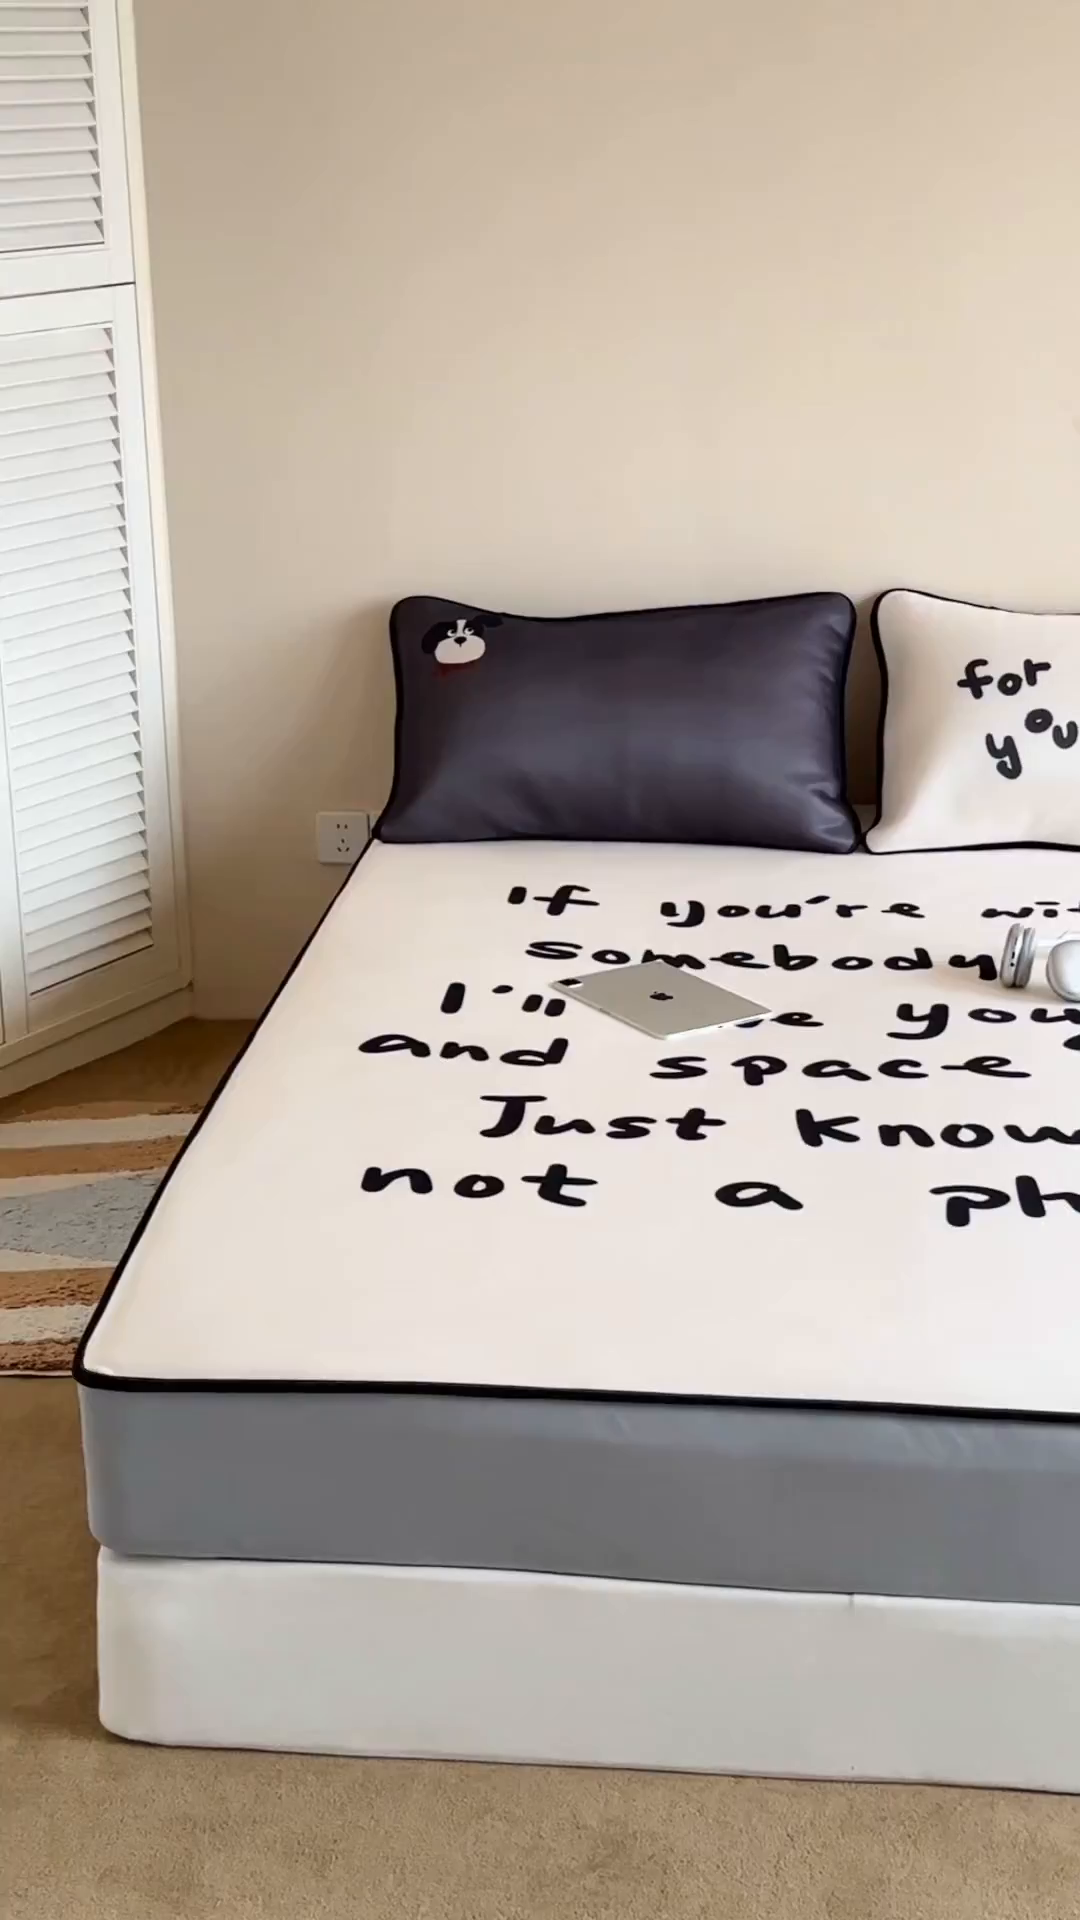 for
you
If you're
somebody
I'll you
and space
Just know
not a